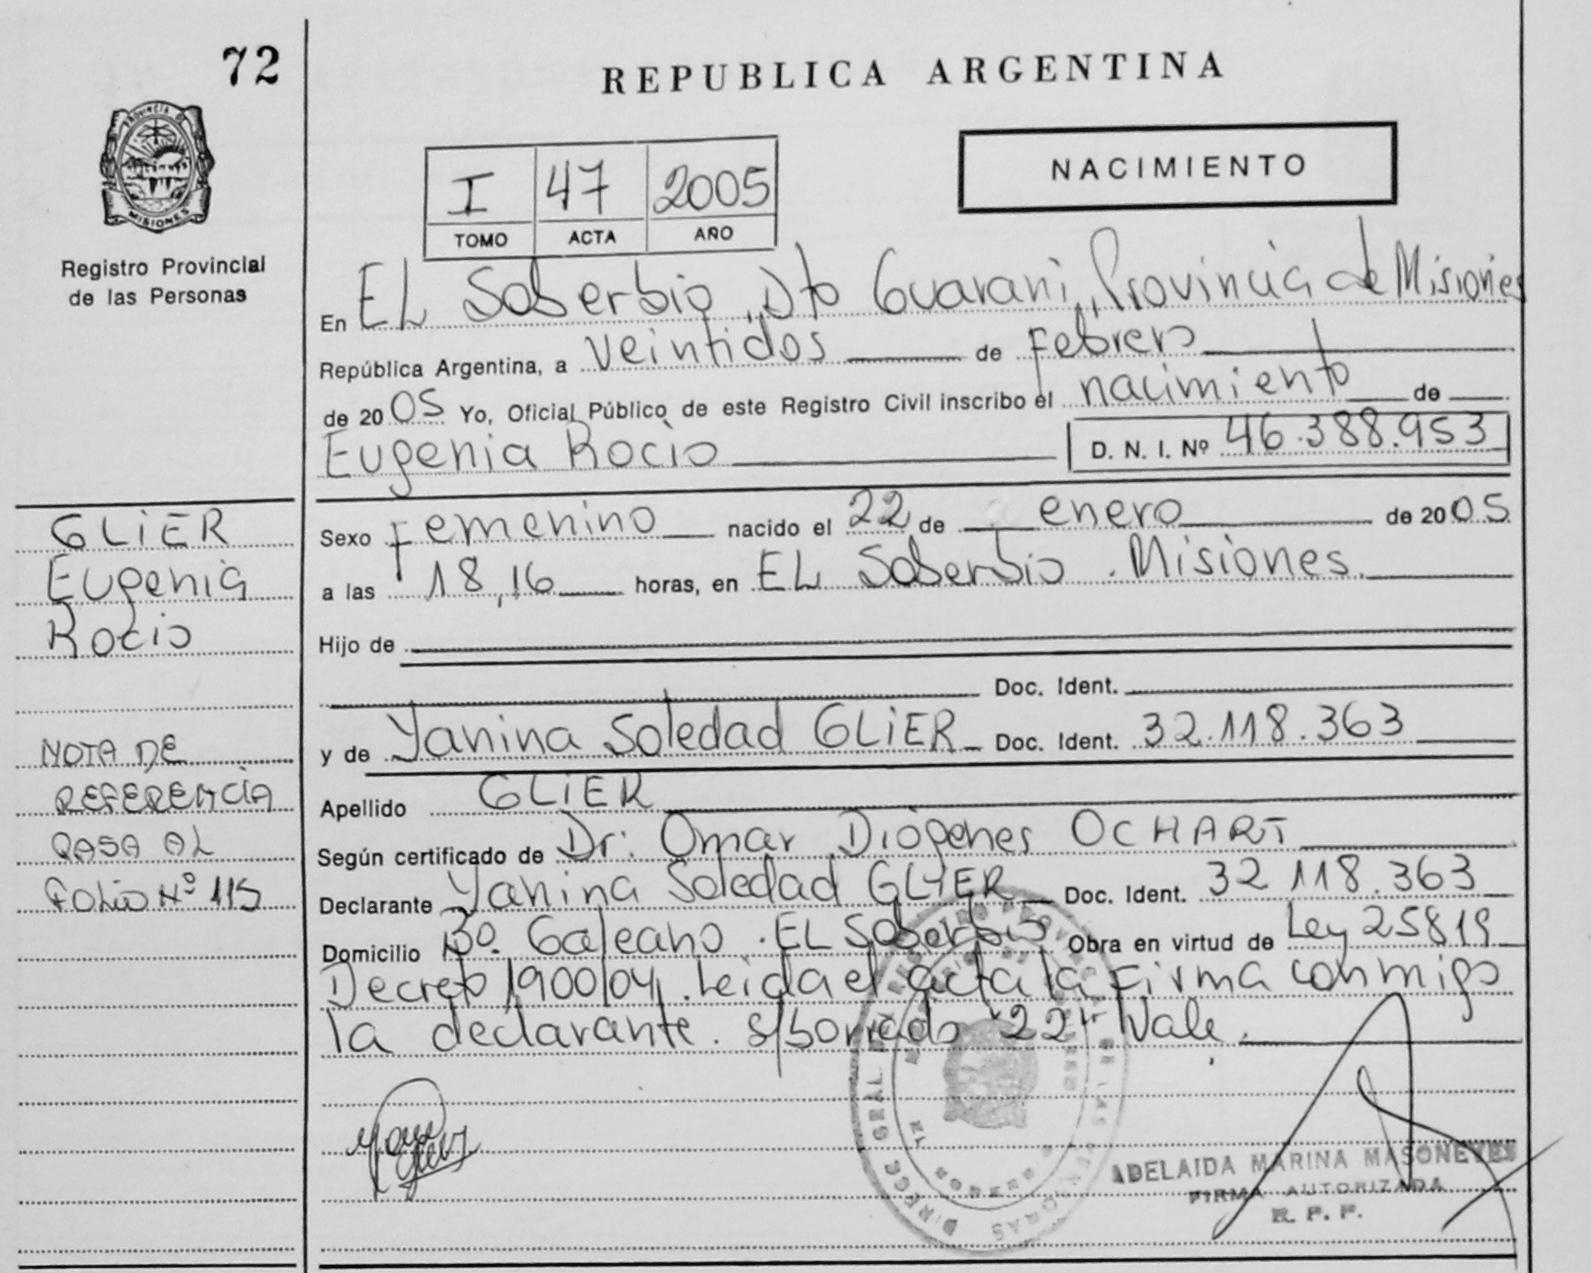 72
REPUBLICA ARGENTINA
PROVINCIA DE
MISIONES
Registro Provincial
de las Personas
I 47 2005
TOMO ACTA AÑO
NACIMIENTO
En EL Soberbio, Dto Guarani, Provincia de Misiones
República Argentina, a veintidos de Febrero
de 2005 Yo, Oficial Público de este Registro Civil inscribo el nacimiento de
Eugenia Rocio D. N. I. Nº 46.388.953
GLiER
Eugenia
Rocio
Sexo Femenino nacido el 22 de enero de 2005
a las 18,16 horas, en EL Soberbio. Misiones.
Hijo de
Doc. Ident.
y de Yanina Soledad GLiER Doc. Ident. 32.118.363
NOTA DE
REFERENCiA
PASA AL
FOLiO Nº 115
Apellido GLiER
Según certificado de Dr: Omar Diógenes OCHART
Declarante Yanina Soledad GLiER Doc. Ident. 32 118.363
Domicilio Bº. Galeano. EL Soberbio Obra en virtud de Ley 25819
Decreto 1900/04. Leida el acta la Firma conmigo
la declarante. s/borrado "22" Vale.
ADELAIDA MARINA MASONEVES
FIRMA AUTORIZADA
R. P. P.